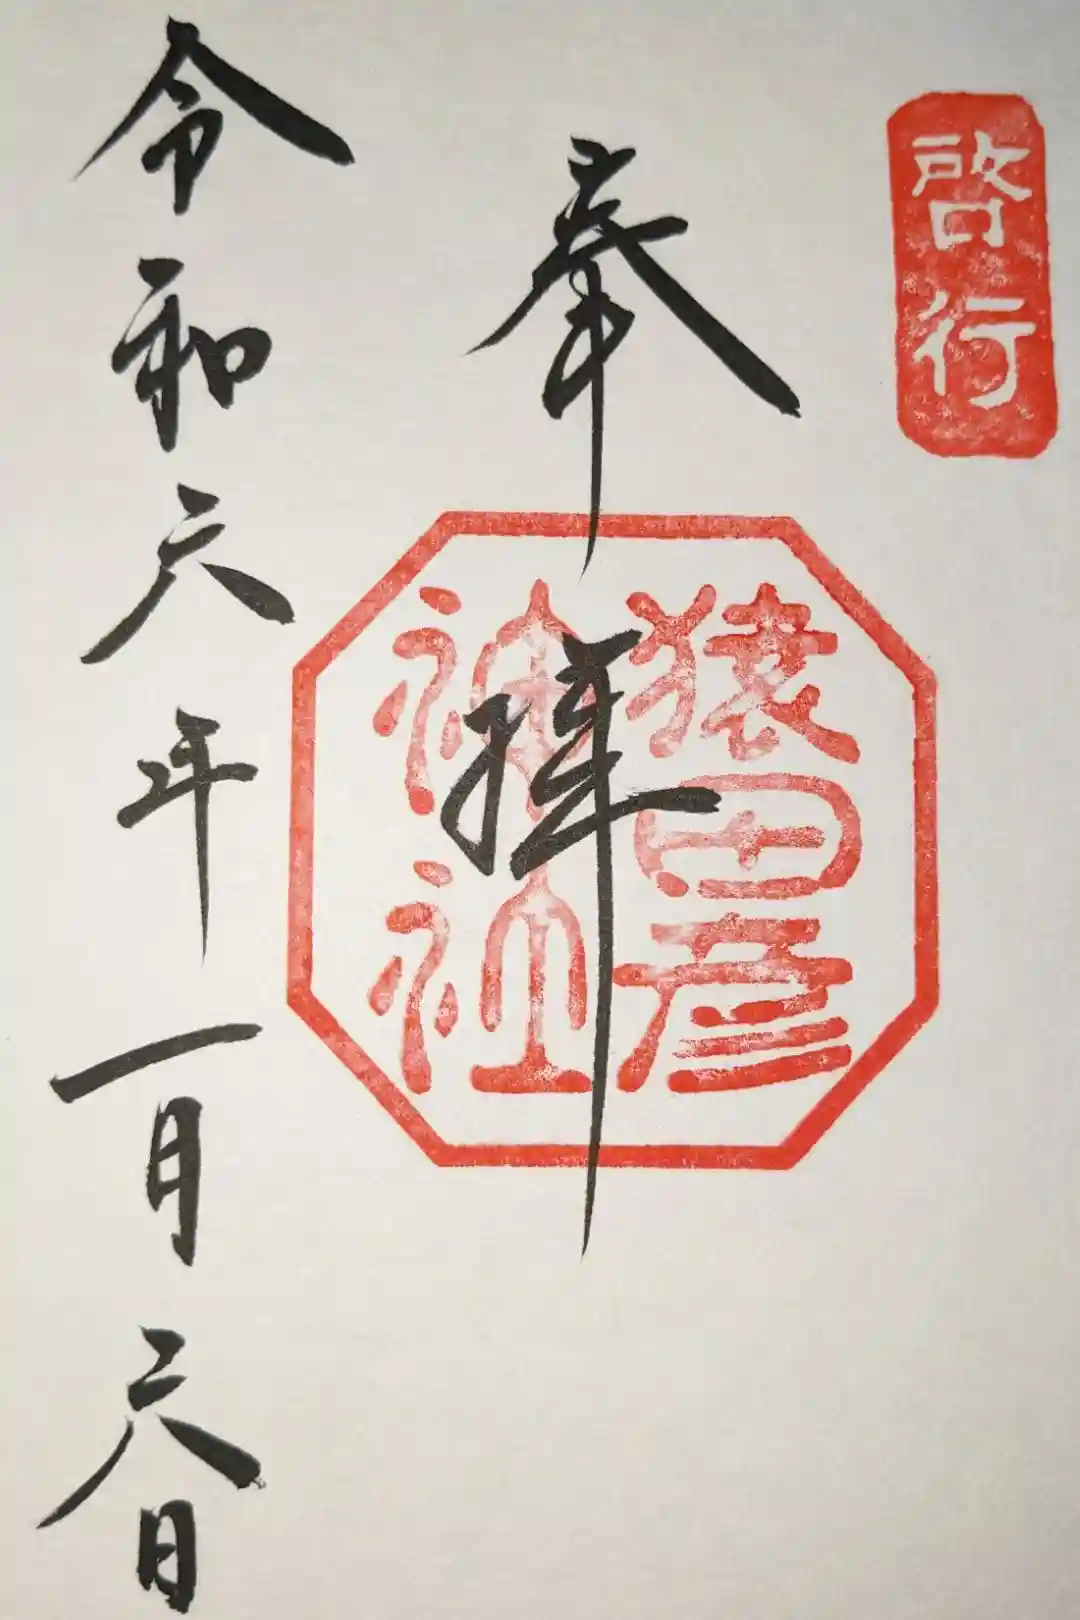 啓行
奉拝
猿田彦
神社
令和六年一月六日